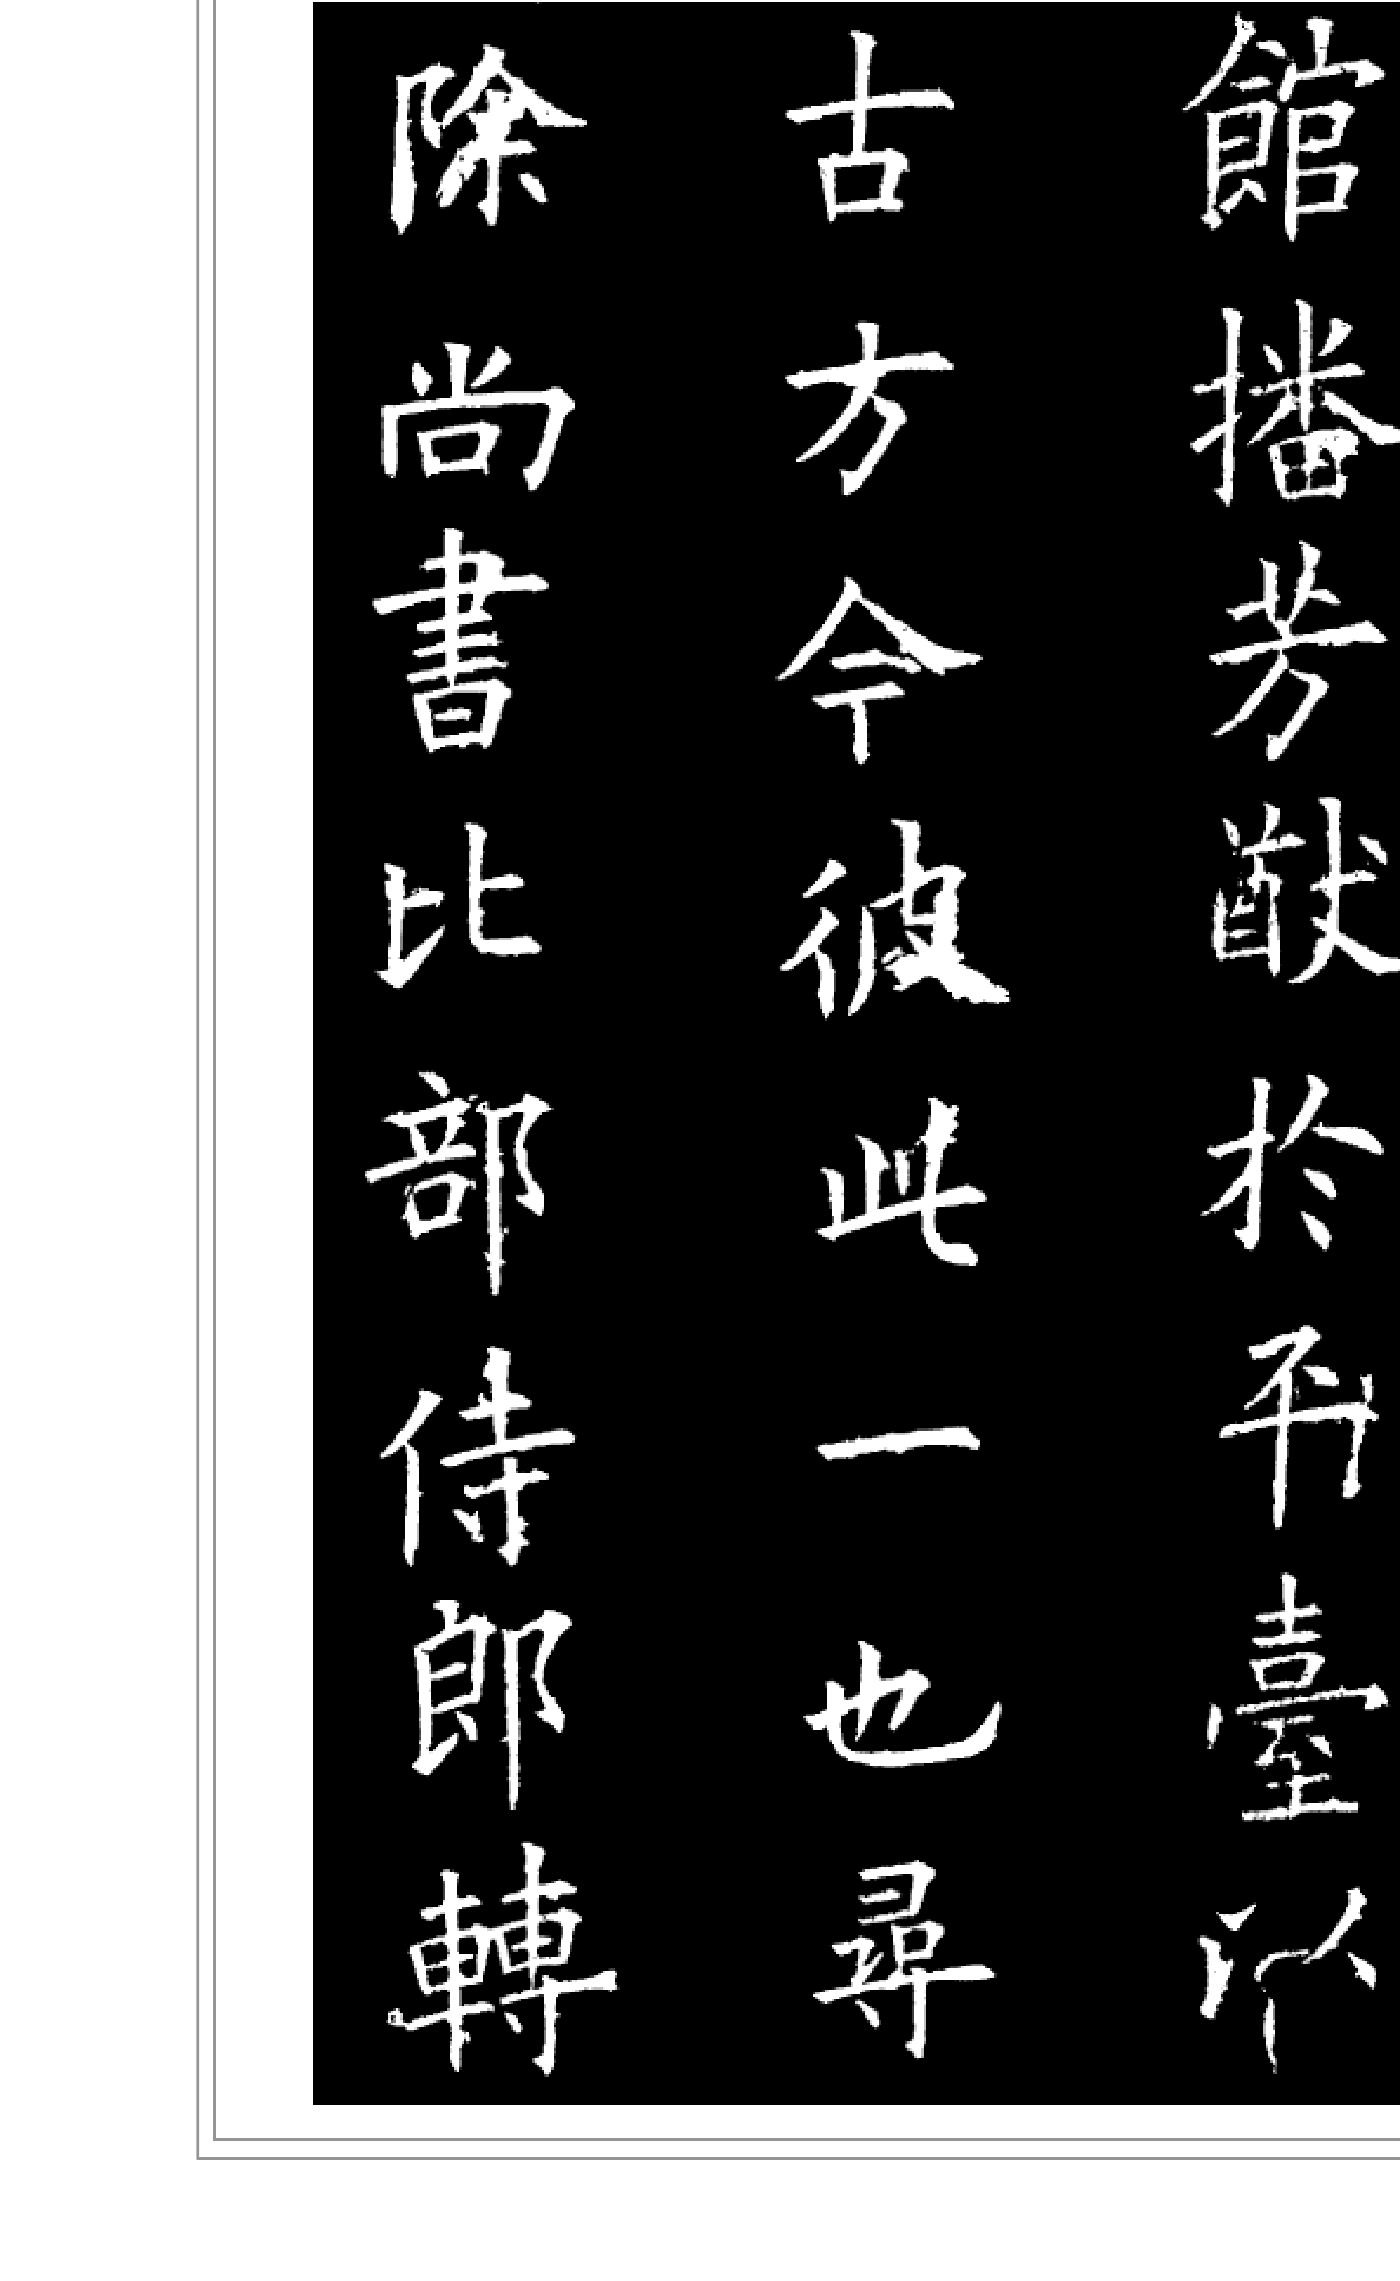 館播芳猷於臺以
古方今彼此一也尋
除尚書比部侍郎轉